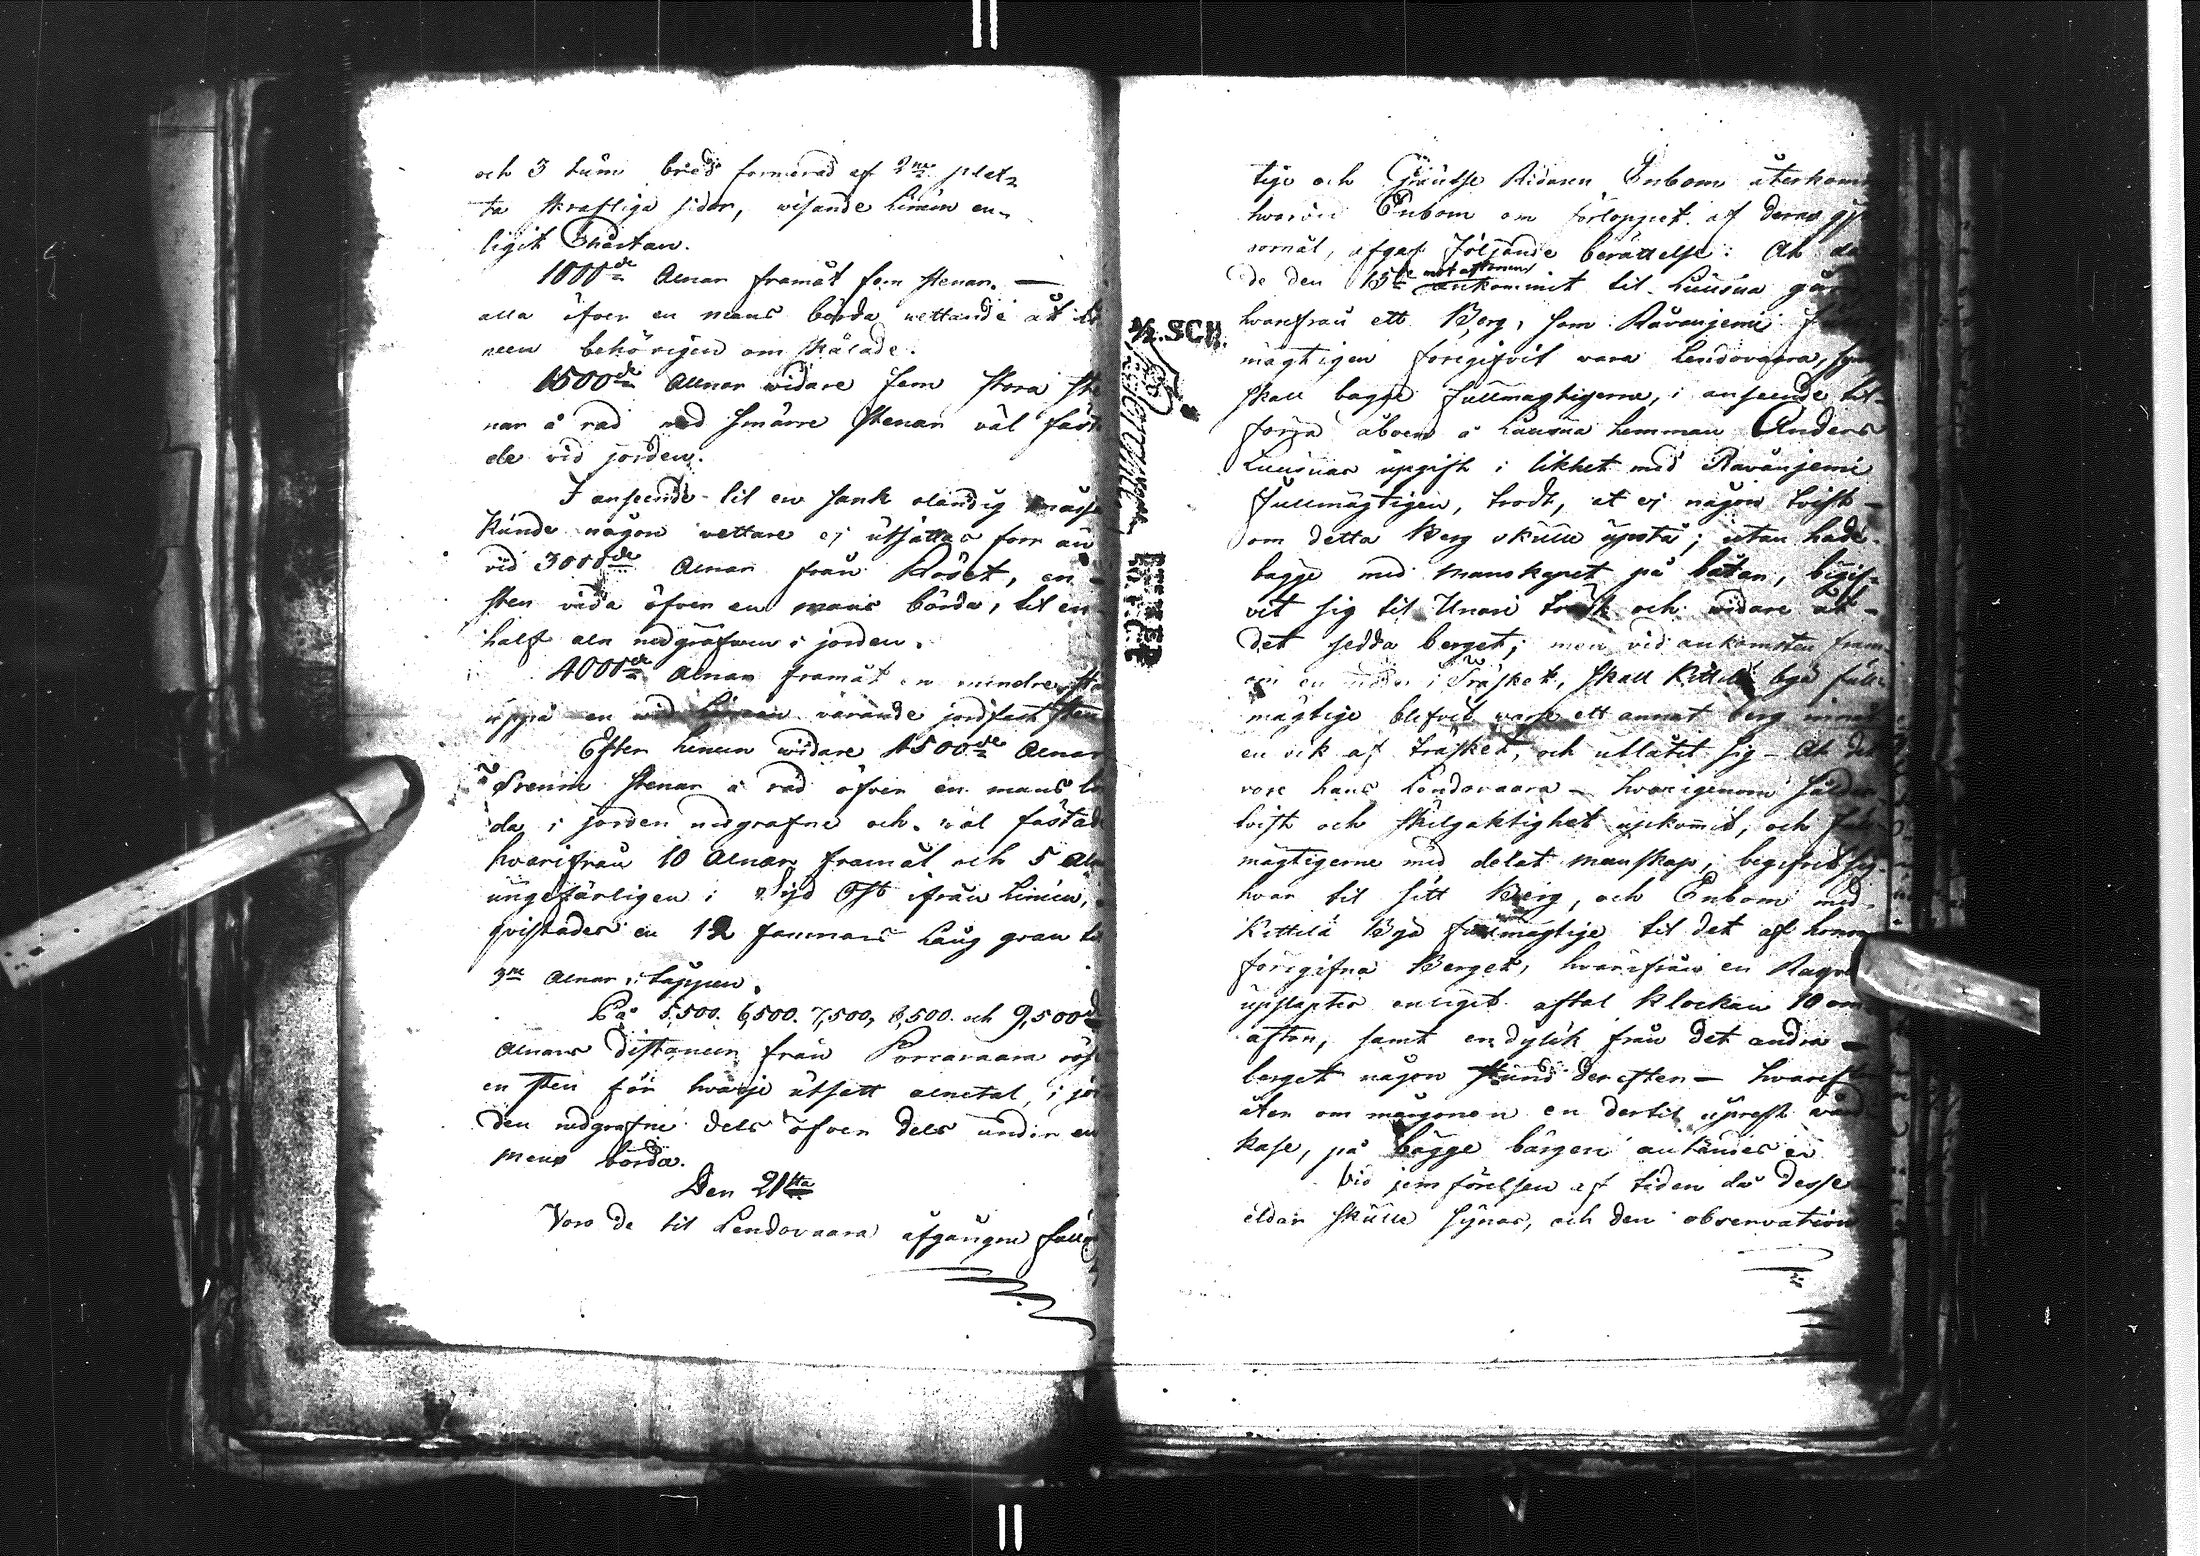 och 3 tum bred formerad af 2ne plat-
ta skrafliga sidor, wisande Linien en-
ligit Chartan.
1000de Alnar framåt fem stenar. —
alla öfver en mans börda vettande åt
nien behörigen om skålade.
1500de Alnar widare fem stora ste
nar å rad med smärre stenar väl fäst
de vid jorden.
I anseende til en sank oländig
kunde någon vettare ej utsättas förr än
vid 3000de Alnar från Röset, en
sten vida öfver en mans börda, til en
half aln nedgrafwen i jorden.
4000de Alnar framåt en mindre
uppå en wid Linien varande jordfast sten
Efter linien widare 4500de Alnar
Trenne stenar å rad öfver en mans bö
da i jorden nedgrafne och väl fästad
hvarifrån 10 Alnar framåt och 5 Aln
ungefärligen i Syd Ost ifrån Linien,
qvistades en 12 famnars Lång gran
3ne Alnar i tåppen.
På 5,500. 6,500. 7,500, 8,500. och 9,500de
Alnars distancen från Porcavaara rös
en sten för hvarje utsatt alnetal, i jor
den nedgrafne dels öfver dels under en
mens börda.
Den 21sta
Voro de til Lendovaara afgångne full
tige och Gräntse Ridaren Enbom återkom
hvarvid Enbom om förloppet af deras gjö
romål, afgaf följande berättelse: At
de den 15de mot aftonen ankommit til Luusua går
hvarifrån ett Berg, som Råvanjemi
mägtigen föregifvit vara Lendovaara,
skall bägge fullmägtigerne, i anseende til
förra åboen å Luusua hemman Anders
Luusuas upgift i likhet med Ravanjemi
fullmägtigen, trodt, at ej någon tvist —
om detta Berg skulle upstå; utan hade
bägge med manskapet på båtan, begif-
vit sig til Unari träsk och widare åt —
det sedda berget; men vid ankomsten fram
om en udde i Träsket, skall Kittilä byä full
mägtige blifvit varse ett annat berg innat
en vik af träsket, och utlåtit sig — At det
vore hans Londovaara — hvarigenom
tvist och skilgaktighet upkommit, och full
mägtigerne med delat manskap, begifvit sig
hvar til sitt Berg, och Enbom med
Kittilä Byä fullmägtige til det af honom
föregifna Berget, hvarifrån en Raqvet
upsläptes enligit aftal klockan 10 om
afton, samt en dylik från det andra —
berget någon stund derefter — hvareft
åter om morgonen en dertil uprest vård
kase, på bägge bärgen antändes
Vid jemförelsen af tiden då desse
eldar skulle synas, och den observation